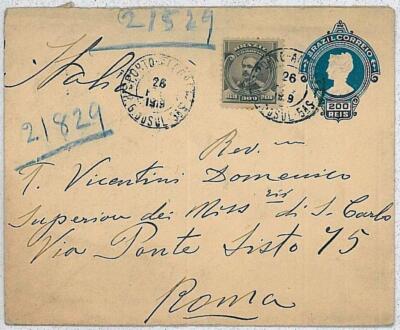 21829
Italia
21829
PORTO-ALEGRE
26
1919
R.G. DO SUL
BRAZIL
300 REIS
PORTO-AL
26
9
DO SUL
BRAZIL CORREIO
200
REIS
Rev. mo
T. Vicentini Domenico
Superiore dei Miss ri di S. Carlo
Via Ponte Sisto 75
Roma